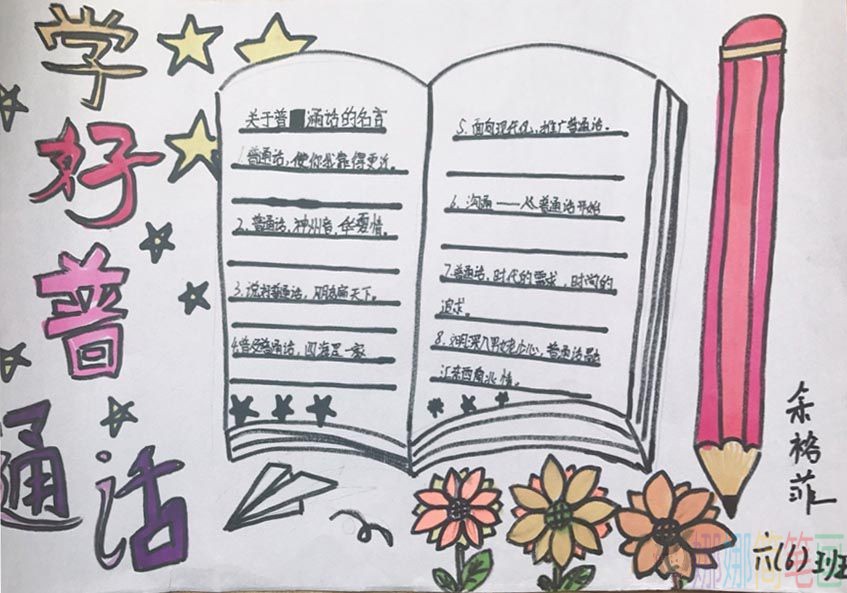 学
好
普
通
话
关于普通话的名言
1.普通话,使你我靠得更近。
2.普通话,神州音,华夏情。
3.说好普通话,朋友遍天下。
4.普及普通话,四海是一家
5.面向现代化,推广普通话。
6.沟通——从普通话开始
7.普通话,时代的需求,时尚的
追求。
8.文明深入男女老少心,普通话融
汇东西南北情。
余格菲
六(6)班
娜娜简笔画